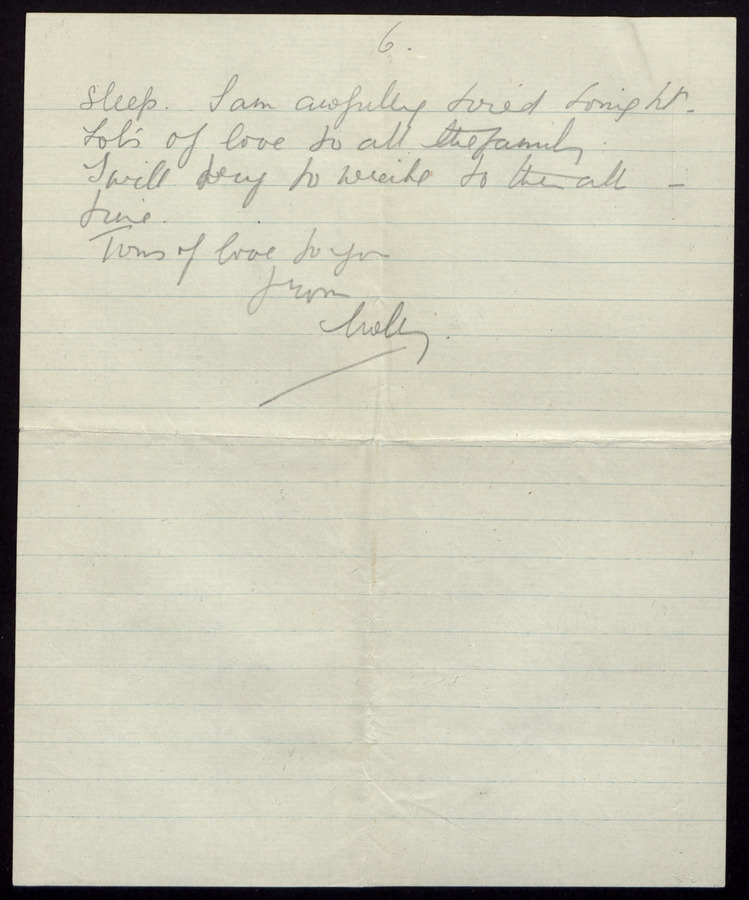 6.
sleep. I am awfully tired tonight -
Lots of love to all the family.
I will try to write to them all -
time.
Tons of love to you
from
Molly.